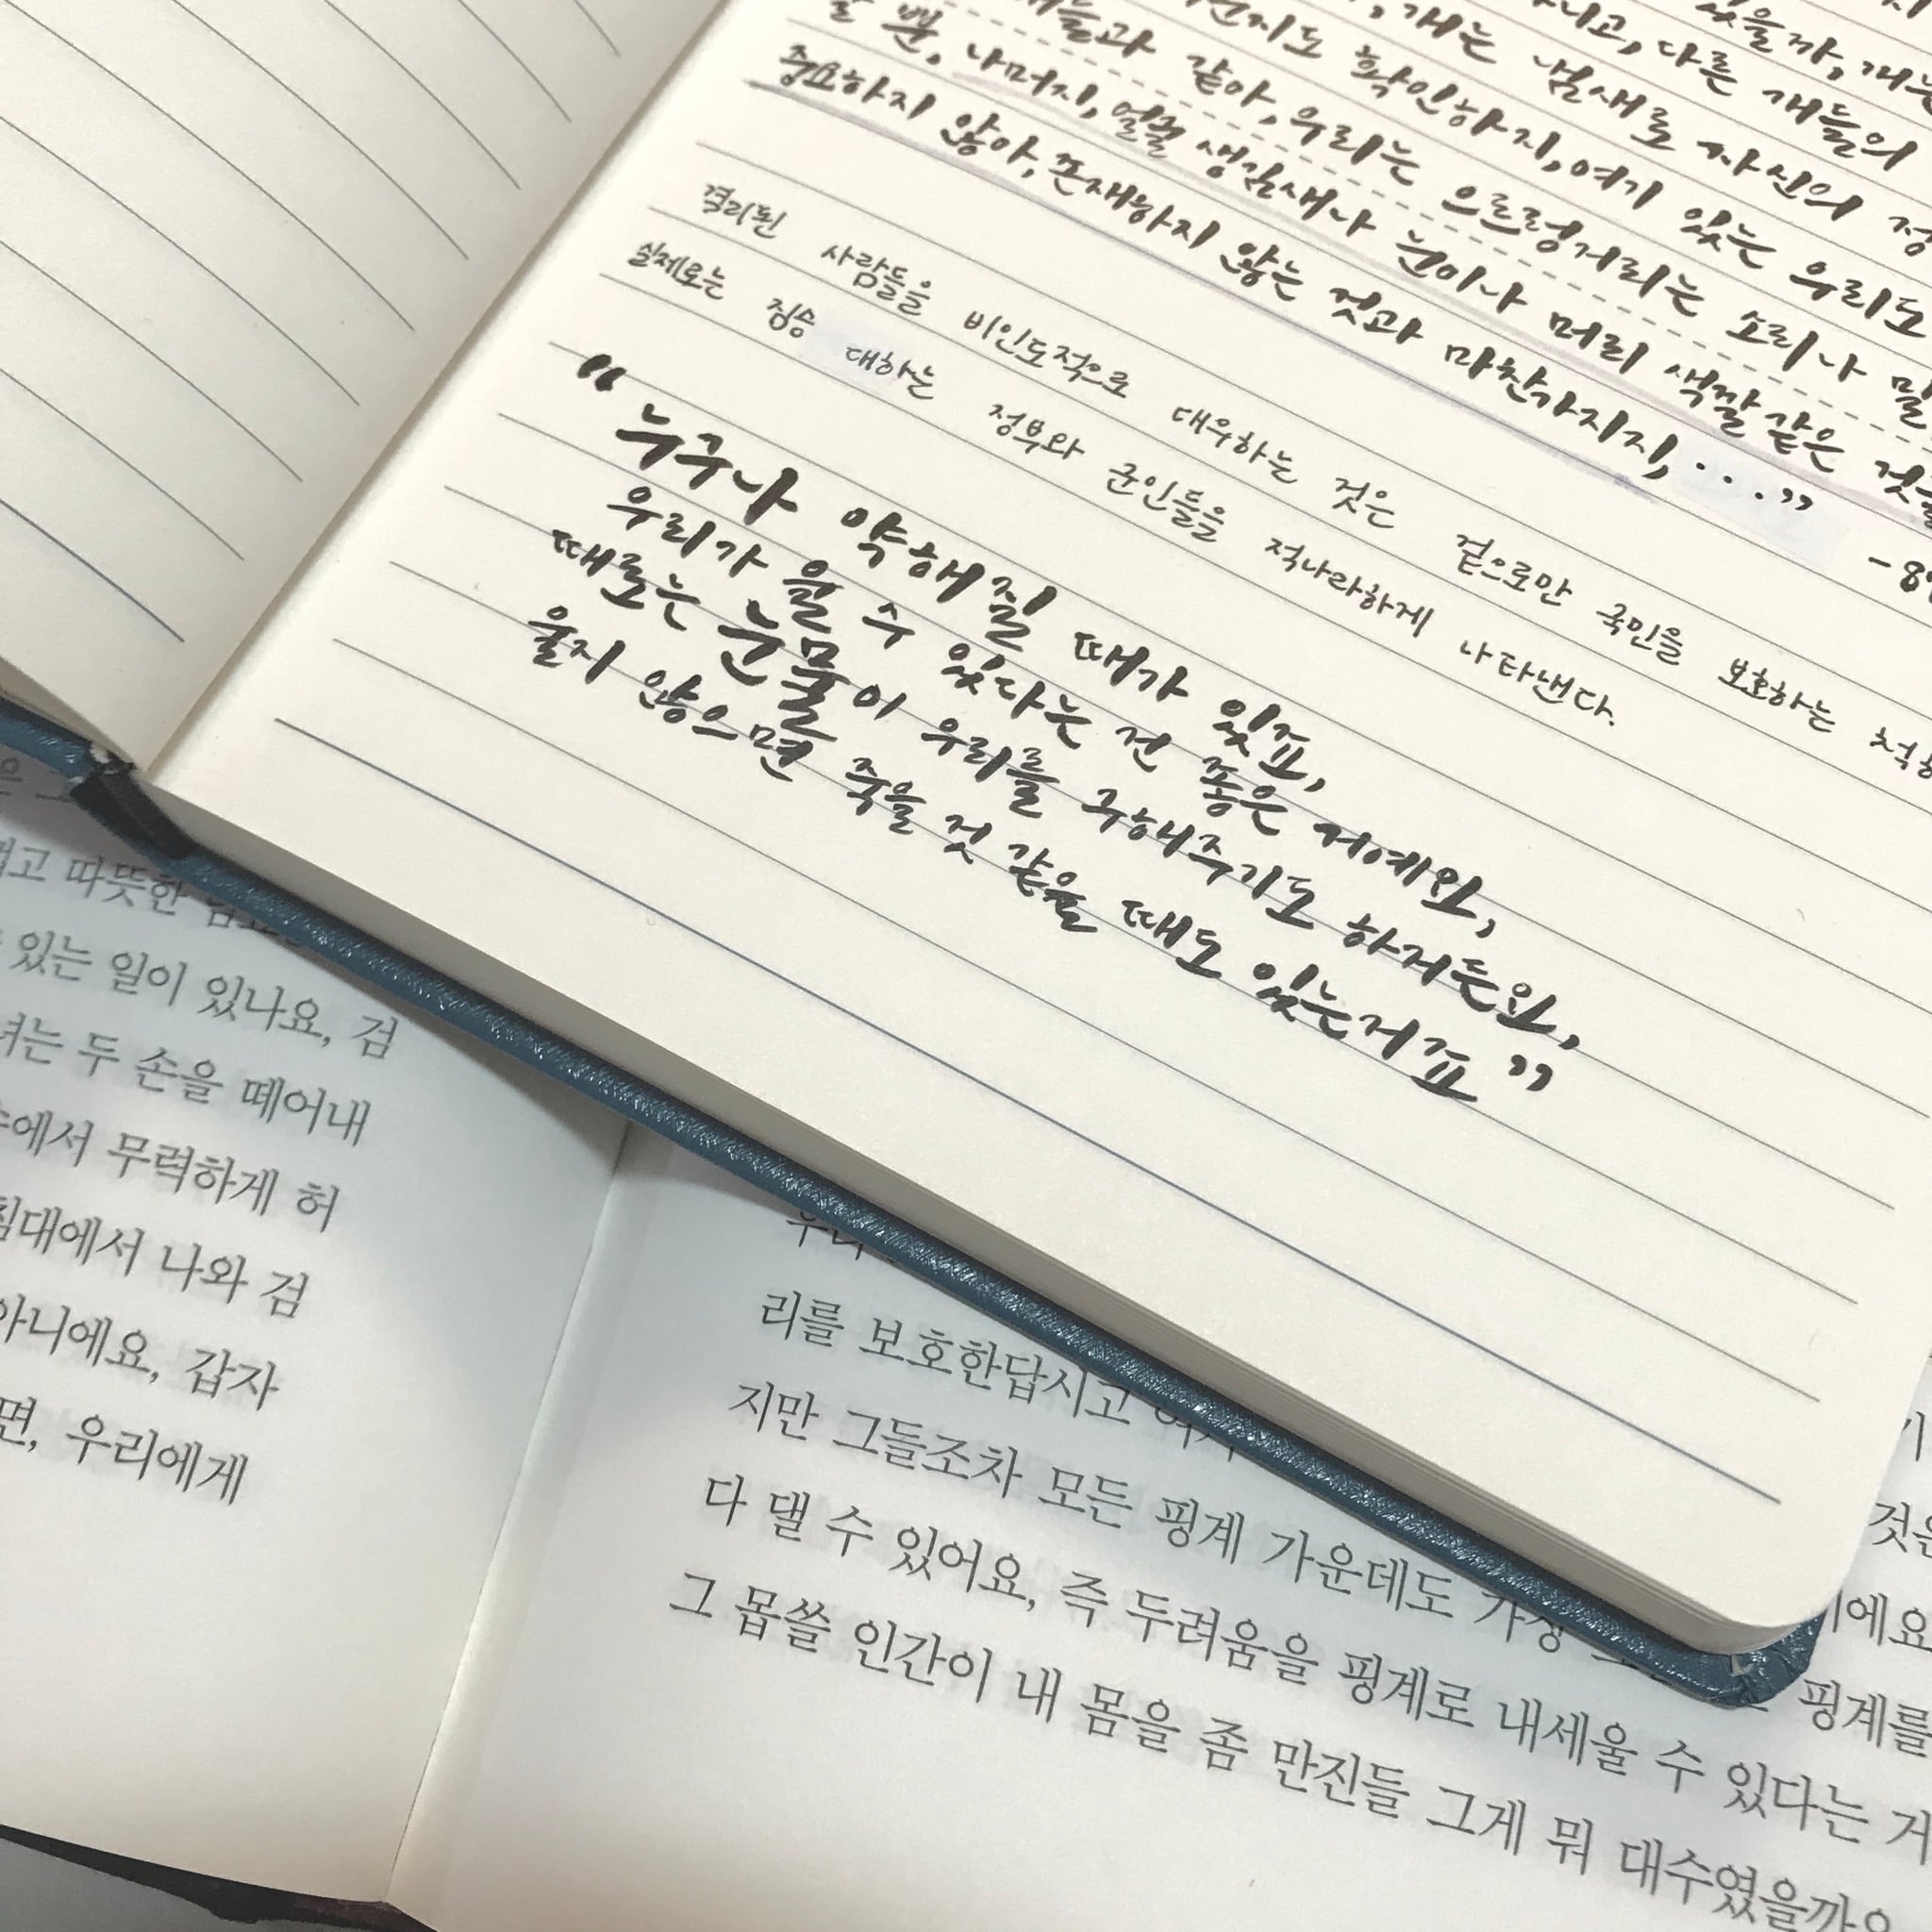 있을까, 개는
개는 냄새로 자신의
다른 개들의
개들과 같아, 우리는 으르렁거리는 소리나
확인하지, 여기 있는 우리도
뿐, 나머지, 얼굴 생김새나 눈이나 머리 색깔 같은
중요하지 않아, 존재하지 않는 것과 마찬가지지, ..."
격리된 사람들을 비인도적으로 대우하는 것은 겉으로만 국민을 보호하는
실제로는 짐승 대하는 정부와 군인들을 적나라하게 나타낸다.
" 누구나 약해질 때가 있죠,
우리가 울 수 있다는 건 좋은 거예요,
때로는 눈물이 우리를 구해주기도 하거든요,
울지 않으면 죽을 것 같을 때도 있는거죠 "
따뜻한
있는 일이 있나요, 검
두 손을 떼어내
에서 무력하게 허
침대에서 나와 검
아니에요, 갑자
면, 우리에게
리를 보호한답시고
지만 그들조차 모든 핑계 가운데도 가장
것은
다 댈 수 있어요, 즉 두려움을 핑계로 내세울 수 있다는 거
에요
핑계를
그 몹쓸 인간이 내 몸을 좀 만진들 그게 뭐 대수였을까요